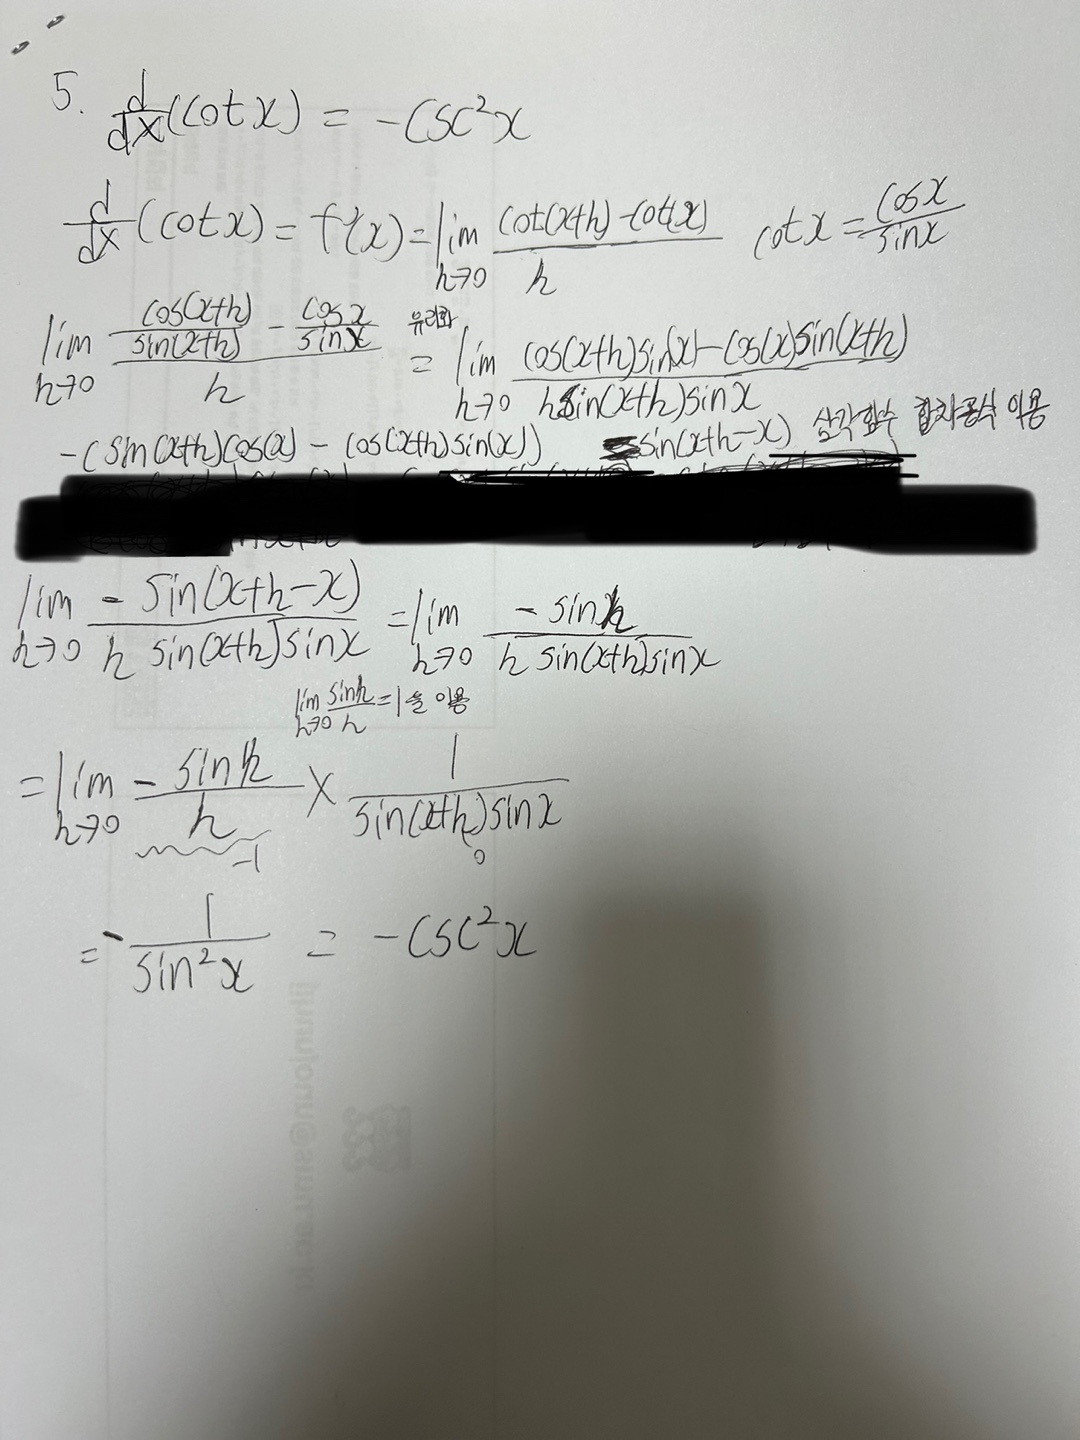 5. d/dx (cotx) = -csc²x
d/dx (cotx) = f'(x) = lim h→0 (cot(x+h) - cot(x))/h   cotx = cosx/sinx
lim h→0 (cos(x+h)/sin(x+h) - cosx/sinx)/h 유리화 = lim h→0 (cos(x+h)sin(x) - cos(x)sin(x+h))/(h sin(x+h)sinx)
-(sin(x+h)cos(x) - cos(x+h)sin(x))   sin(x+h-x) 삼각함수 합차공식 이용
lim h→0 -sin(x+h-x)/(h sin(x+h)sinx) = lim h→0 -sinh/(h sin(x+h)sinx)
lim h→0 sinh/h = 1을 이용
= lim h→0 -sinh/h × 1/(sin(x+h)sinx)
-1   0
= -1/sin²x = -csc²x